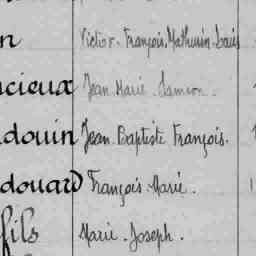 n Victor. François, Mathurin, Louis
ncieux Jean Marie Samson.
douin Jean Baptiste François.
douard François Marie.
fils Marie Joseph.